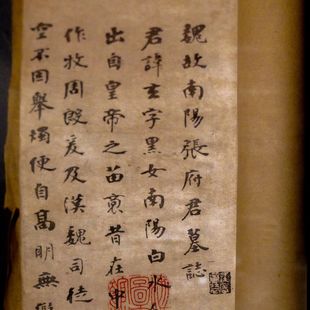 魏故南陽張府君墓誌
君諱玄字黑女南陽白水
出自皇帝之苗裔昔在中
作牧周殷爰及漢魏司徒
空不因舉燭便自高明無